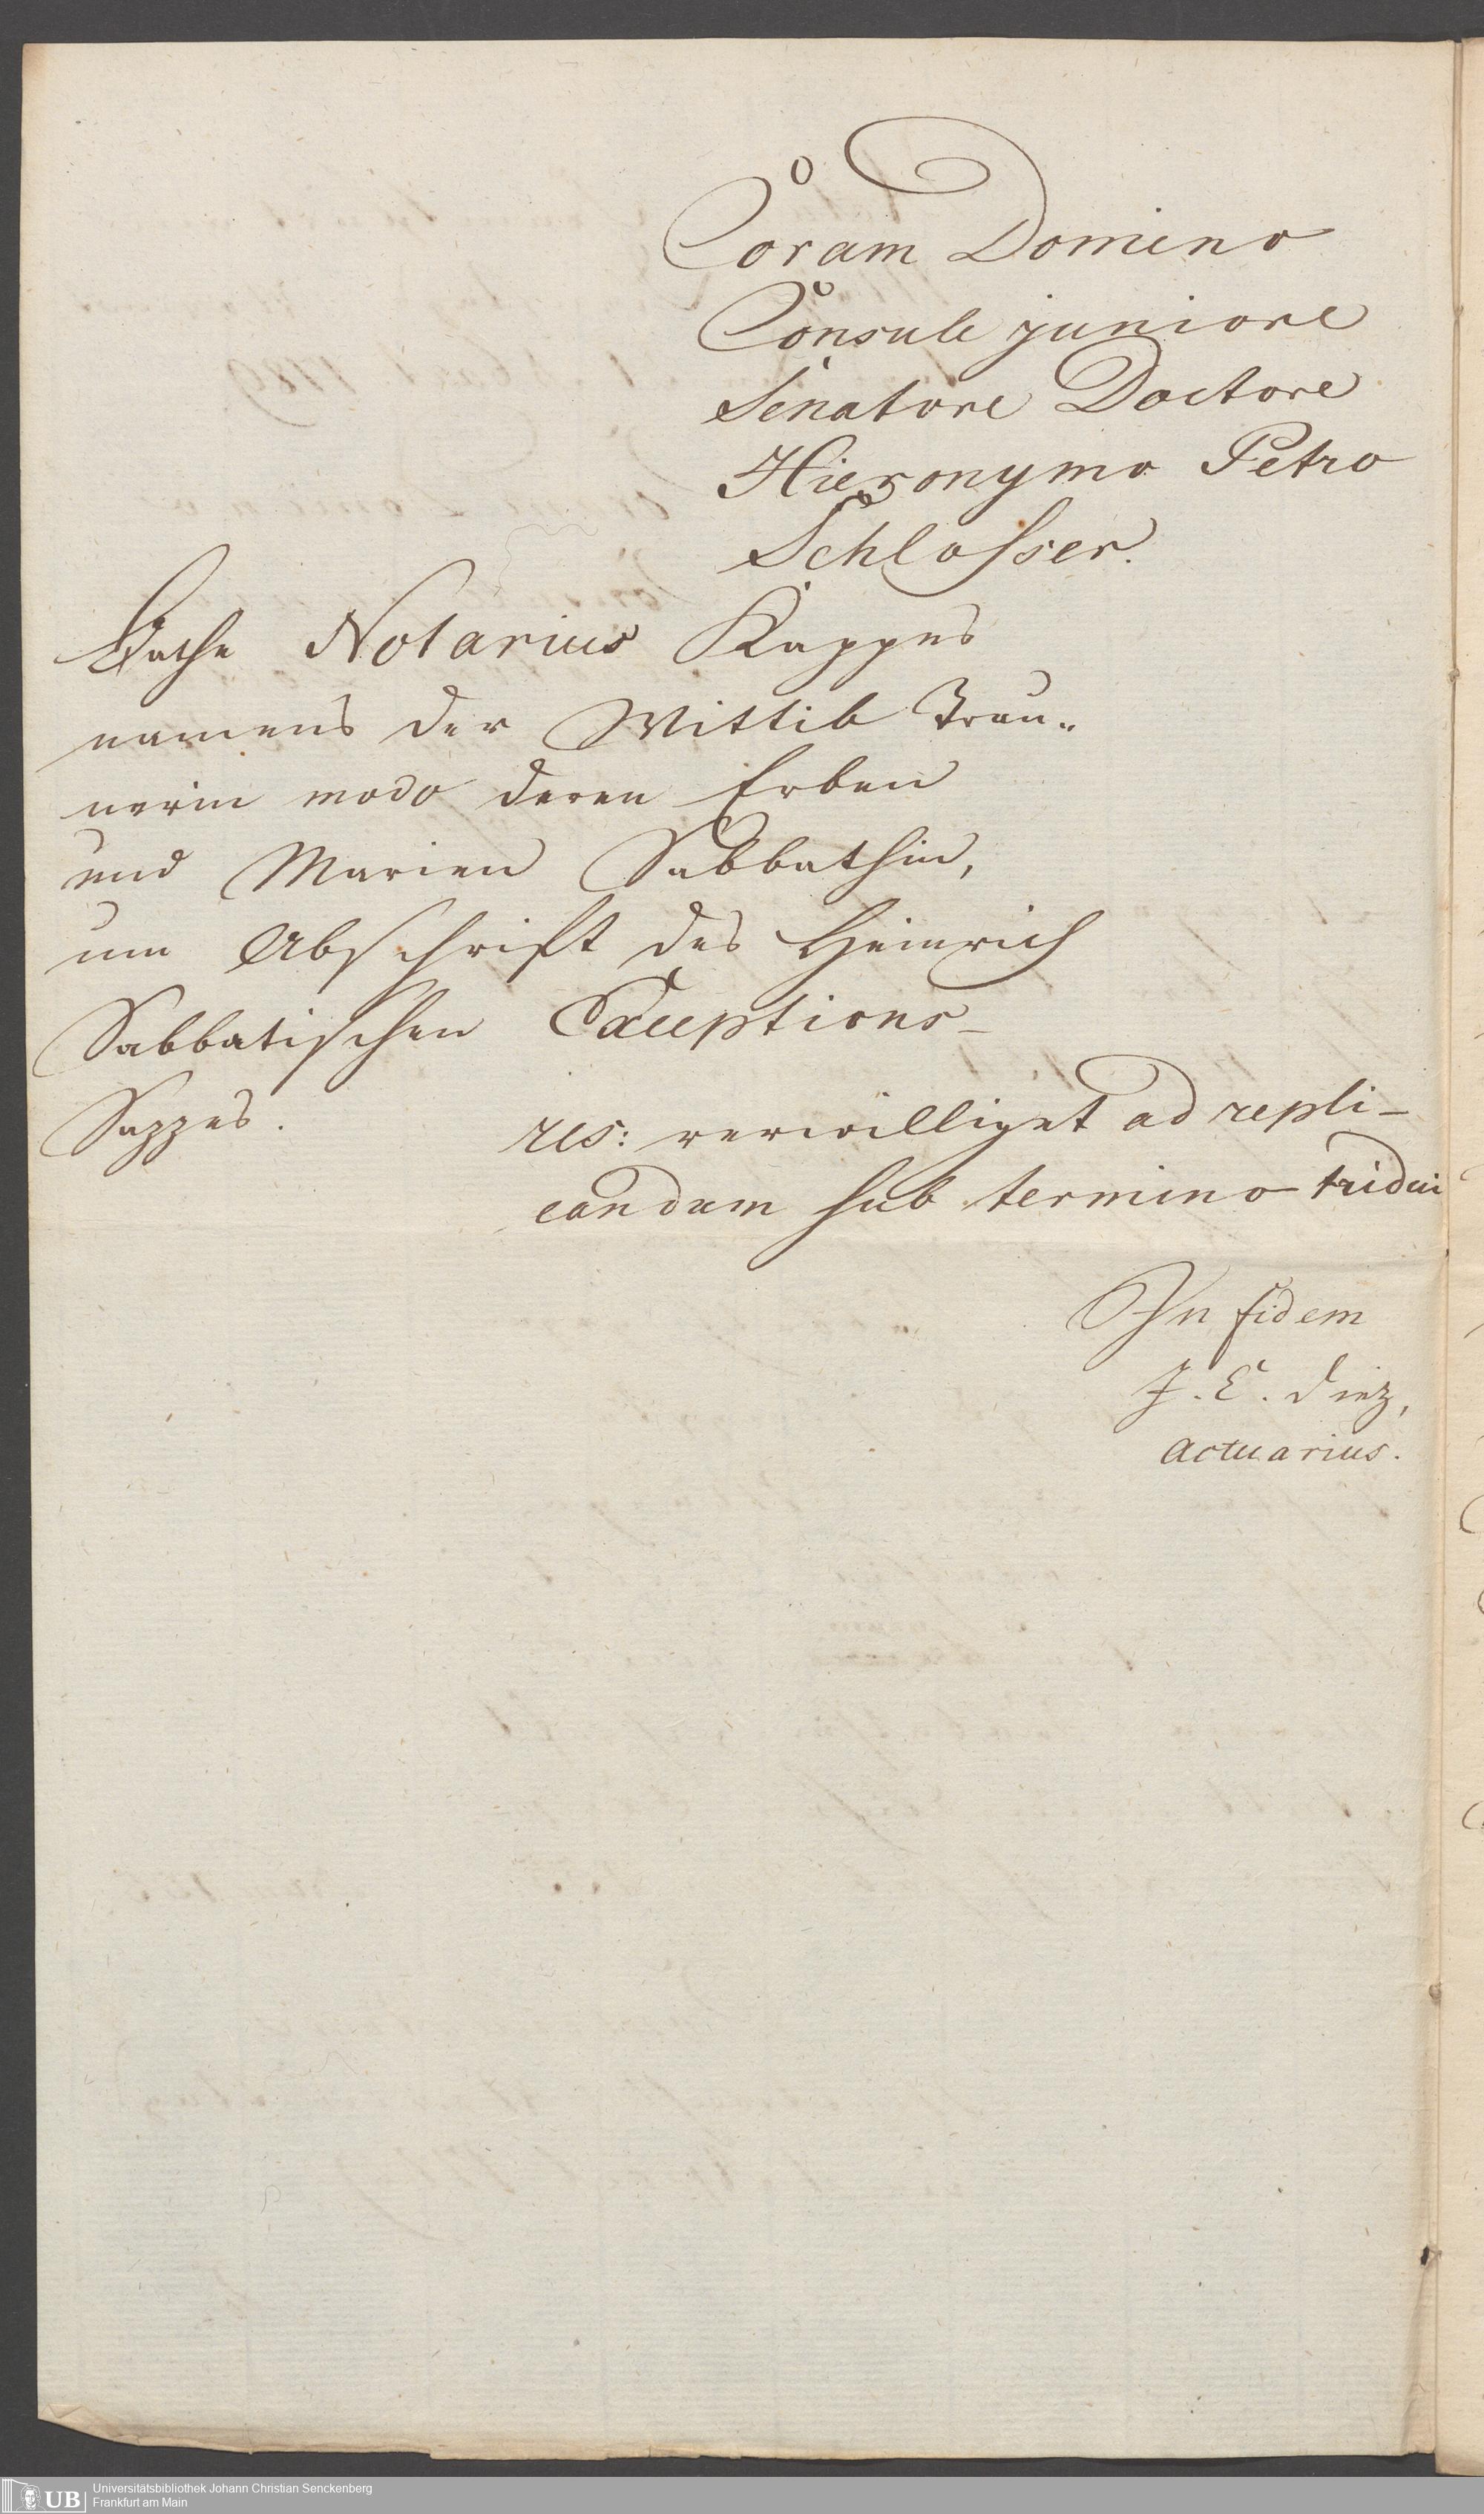 Coram Domino
Consule juniore
Senatore Doctore
Hieronymo Petro
Schlosser.
Bathe Notarius Kappes
namens der Wittib Brau-
nerin modo deren Erben
und Marien Sabbathin,
um Abschrift des Heinrich
Sabbatischen Exceptions-
Sazzes.
res: verwilliget ad repli-
candum sub termino tridui
In fidem
J. E. Diez,
Actuarius.
UB
Universitätsbibliothek Johann Christian Senckenberg
Frankfurt am Main